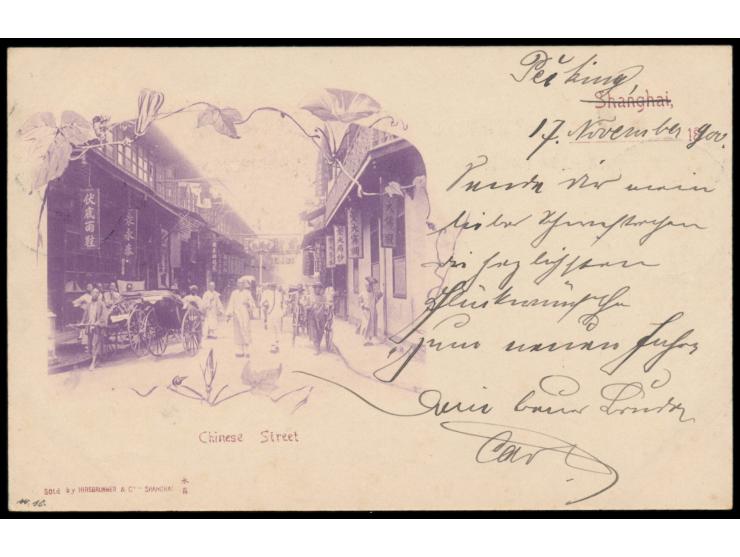 Peking
Shanghai,
17. November 1900.
Sende dir mein
lieber Schwesterchen
die herzlichsten
Glückwünsche
zum neuen Jahre
dein Bruder
Carl
Chinese Street
Sold by HIRSBRUNNER & Co SHANGHAI